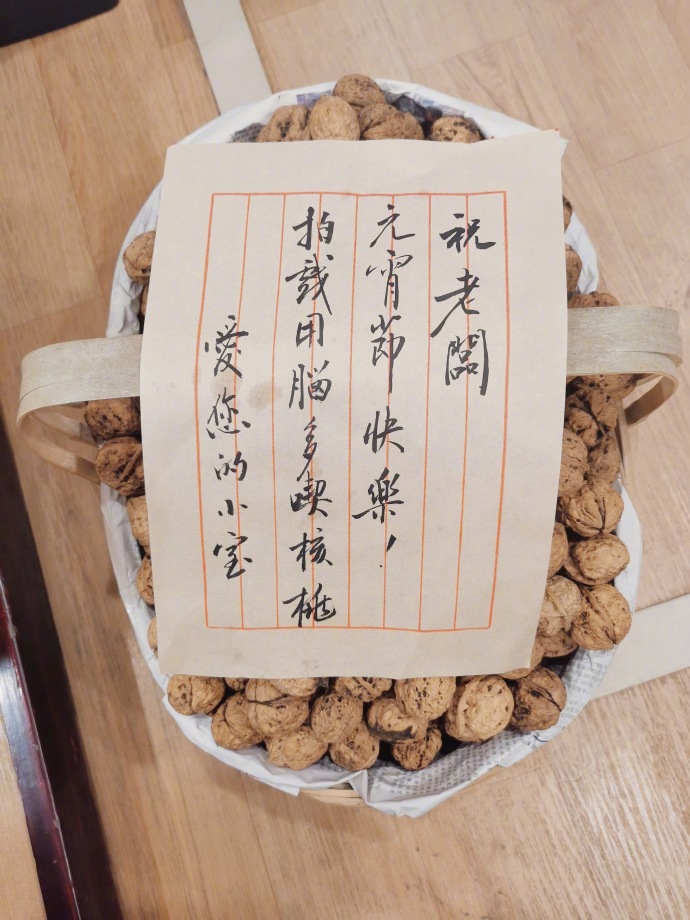 祝老闆
元宵節快樂！
拍戲用腦多喫核桃
愛您的小室